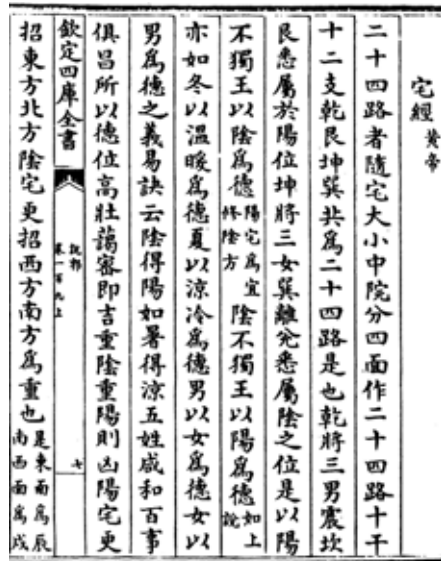 宅經黄帝
二十四路者隨宅大小中院分四面作二十四路十干
十二支乾艮坤巽共為二十四路是也乾將三男震坎
艮悉屬於陽位坤將三女巽離兌悉屬陰之位是以陽
不獨王以陰為德陽宅為宜修陰方陰不獨王以陽為德如上說
亦如冬以温暖為德夏以涼冷為德男以女為德女以
男為德之義易訣云陰得陽如暑得涼五姓咸和百事
俱昌所以德位高壯藹密即吉重陰重陽則凶陽宅更
欽定四庫全書 說郛卷一百九上 七
招東方北方陰宅更招西方南方為重也是東面為辰南西面為戌